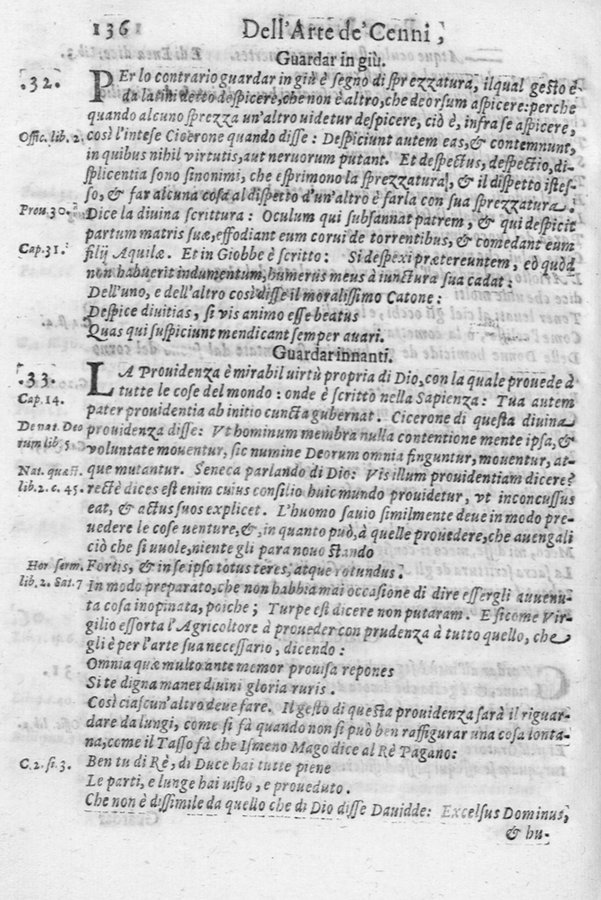 136 Dell'Arte de'Cenni,
Guardar in giù.
.32. PEr lo contrario guardar in giù è segno di sprezzatura, il qual gesto è
da latini detto despicere, che non è altro, che deorsum aspicere: perche
quando alcuno sprezza un'altro uidetur despicere, ciò è, infra se aspicere,
Offic. lib. 2. così l'intese Cicerone quando disse: Despiciunt autem eas, & contemnunt,
in quibus nihil virtutis, aut neruorum putant. Et despectus, despectio, di-
splicentia sono sinonimi, che esprimono la sprezzatura, & il dispetto istes-
so, & far alcuna cosa al dispetto d'un'altro è farla con sua sprezzatura.
Prou. 30. Dice la diuina scrittura: Oculum qui subsannat patrem, & qui despicit
partum matris suæ, effodiant eum corui de torrentibus, & comedant eum
Cap. 31. filij Aquilæ. Et in Giobbe è scritto: Si despexi prætereuntem, eò quòd
non habuerit indumentum, humerus meus à iunctura sua cadat:
Dell'uno, e dell'altro così disse il moralissimo Catone:
Despice diuitias, si vis animo esse beatus
Quas qui suspiciunt mendicant semper auari.
Guardar innanti.
.33. LA Prouidenza è mirabil uirtù propria di Dio, con la quale prouede à
Cap. 14. tutte le cose del mondo: onde è scritto nella Sapienza: Tua autem
pater prouidentia ab initio cuncta gubernat. Cicerone di questa diuina
De nat. Deo prouidenza disse: Vt hominum membra nulla contentione mente ipsa, &
rum lib. 5. voluntate mouentur, sic numine Deorum omnia finguntur, mouentur, at-
Nat. quæst. que mutantur. Seneca parlando di Dio: Vis illum prouidentiam dicere?
lib. 2. c. 45. rectè dices est enim cuius consilio huic mundo prouidetur, vt inconcussus
eat, & actus suos explicet. L'huomo sauio similmente deue in modo pre-
uedere le cose uenture, &, in quanto può, à quelle prouedere, che auengali
ciò che si uuole, niente gli para nouo stando
Hor. serm. Fortis, & in se ipso totus teres, atque rotundus.
lib. 2. Sat. 7 In modo preparato, che non habbia mai occasione di dire essergli auuenu-
ta cosa inopinata, poiche; Turpe est dicere non putaram. E sicome Vir-
gilio essorta l'Agricoltore à proueder con prudenza à tutto quello, che
gli è per l'arte sua necessario, dicendo:
Omnia quæ multo ante memor prouisa repones
Si te digna manet diuini gloria ruris.
Così ciascun'altro deue fare. Il gesto di questa prouidenza sarà il riguar-
dare da lungi, come si fà quando non si può ben raffigurar una cosa lonta-
na, come il Tasso fà che Ismeno Mago dice al Rè Pagano:
C. 2. st. 3. Ben tu di Rè, di Duce hai tutte piene
Le parti, e lunge hai uisto, e proueduto.
Che non è dissimile da quello che di Dio disse Dauidde: Excelsus Dominus,
& hu-